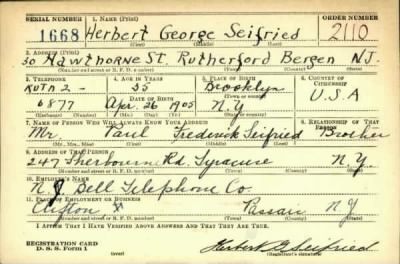 SERIAL NUMBER 1. NAME (Print) ORDER NUMBER
1668 Herbert George Seifried 2110
(First) (Middle) (Last)
2. ADDRESS (Print)
50 Hawthorne St. Rutherford Bergen N.J.
(Number and street or R. F. D. number) (Town) (County) (State)
3. TELEPHONE 4. AGE IN YEARS 5. PLACE OF BIRTH 6. COUNTRY OF CITIZENSHIP
RUTH 2- 35 Brooklyn
DATE OF BIRTH (Town or county) U.S.A
0877 Apr. 26 1905 N.Y
(Exchange) (Number) (Mo.) (Day) (Yr.) (State or country)
7. NAME OF PERSON WHO WILL ALWAYS KNOW YOUR ADDRESS 8. RELATIONSHIP OF THAT PERSON
Mr. Paul Frederick Seifried Brother
(Mr., Mrs., Miss) (First) (Middle) (Last)
9. ADDRESS OF THAT PERSON
247 Sherbourne Rd. Syracuse N.Y.
(Number and street or R. F. D. number) (Town) (County) (State)
10. EMPLOYER'S NAME
N.J Bell Telephone Co.
11. PLACE OF EMPLOYMENT OR BUSINESS
Clifton Passaic N.J
(Number and street or R. F. D. number) (Town) (County) (State)
I AFFIRM THAT I HAVE VERIFIED ABOVE ANSWERS AND THAT THEY ARE TRUE.
REGISTRATION CARD Herbert G Seifried
D. S. S. Form 1 (Registrant's signature)